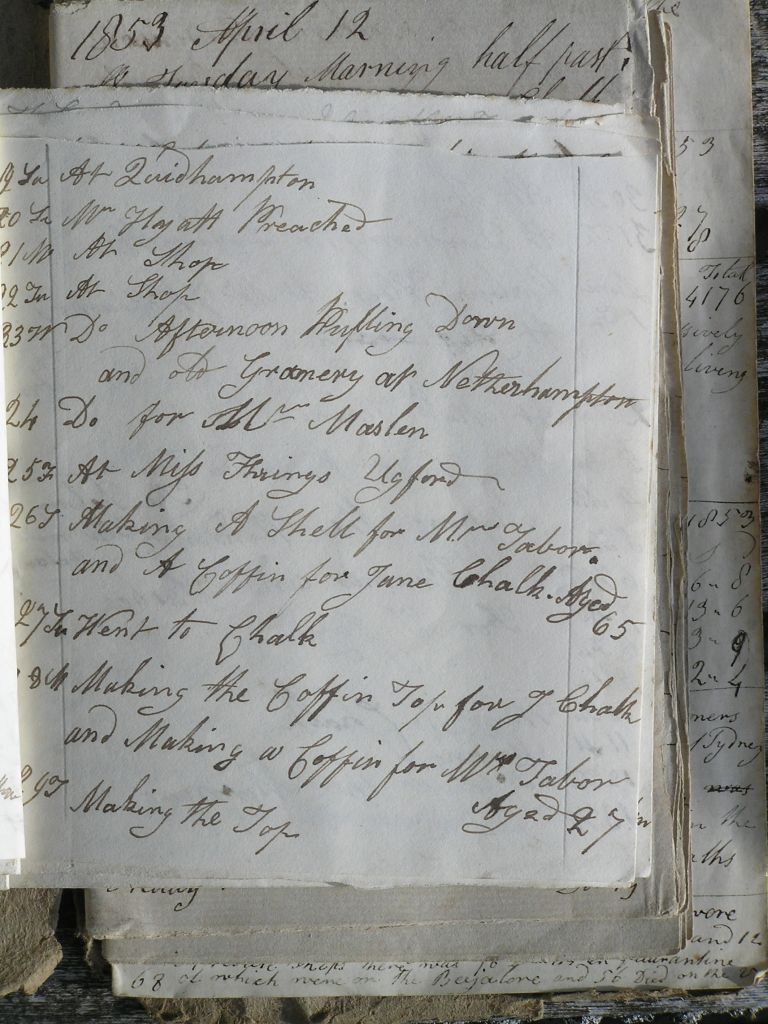 1853 April 12
Tuesday Morning half past
19 Sa At Quidhampton
20 Su Mr Hyatt Preached
21 M At Shop
22 Tu At Shop
23 W Do Afternoon Pulling Down
and old Granery at Netherhampton
24 Do for Mr Maslen
25 F At Miss Thrings Ugford
26 S Making A Shell for Mrs Tabor.
and A Coffin for Jane Chalk. Aged
65
27 Su Went to Chalk
28 M Making the Coffin Top for J Chalk
and Making a Coffin for Mrs Tabor
29 T Making the Top Aged 27
53
Total
4176
sively
living
1853
6 " 8
13 " 6
3 " 9
2 " 4
Sydney
was
the
were
and 12
there was
quarantine
68 of which were on the Beejalore and 56 Died on the